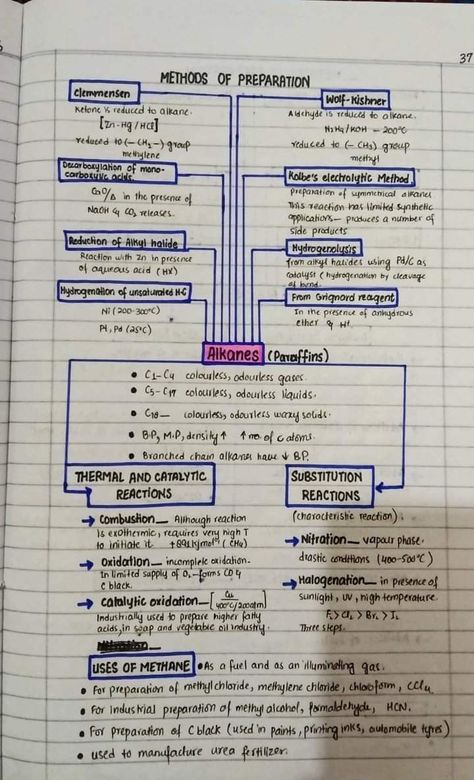 37
METHODS OF PREPARATION
Clemmensen
Ketone is reduced to alkane.
[Zn-Hg/HCl]
reduced to (-CH₂-) group
methylene
Decarboxylation of mono-
carboxylic acids.
CaO/Δ in the presence of
NaOH & CO₂ releases.
Reduction of Alkyl halide
Reaction with Zn in presence
of aqueous acid (HX)
Hydrogenation of unsaturated H-C
Ni (200-300°C)
Pt, Pd (25°C)
Wolf-Kishner
Aldehyde is reduced to alkane.
N₂H₄/KOH - 200°C
reduced to (-CH₃) group
methyl
Kolbe's electrolytic Method.
Preparation of symmetrical alkanes
This reaction has limited synthetic
applications— produces a number of
side products
Hydrogenolysis
from alkyl halides using Pd/C as
catalyst (hydrogenation by cleavage
of bond.
From Grignard reagent
In the presence of anhydrous
ether & H⁺.
Alkanes (Paraffins)
• C₁-C₄ colourless, odourless gases.
• C₅-C₁₇ colourless, odourless liquids.
• C₁₈— colourless, odourless waxy solids.
• B.P, M.P, density↑ ↑ no. of c atoms.
• Branched chain alkanes have ↓ B.P.
THERMAL AND CATALYTIC
REACTIONS
→ Combustion_ Although reaction
is exothermic, requires very high T
to initiate it. +891kjmol⁻¹ (CH₄)
→ Oxidation_ incomplete oxidation.
In limited supply of O₂ - forms CO &
C black.
→ Catalytic oxidation_ [Cu
400°C/200atm]
Industrially used to prepare higher fatty
acids, in soap and vegetable oil industry.
SUBSTITUTION
REACTIONS
(characteristic reaction).
→ Nitration_ vapour phase.
drastic conditions (400-500°C)
→ Halogenation_ in presence of
sunlight, UV, high temperature.
F₂> Cl₂ > Br₂ > I₂
Three steps.
USES OF METHANE • As a fuel and as an illuminating gas.
• For preparation of methyl chloride, methylene chloride, chloroform, CCl₄.
• For industrial preparation of methyl alcohol, formaldehyde, HCN.
• For preparation of C black (used in paints, printing inks, automobile tyres)
• used to manufacture urea fertilizer.